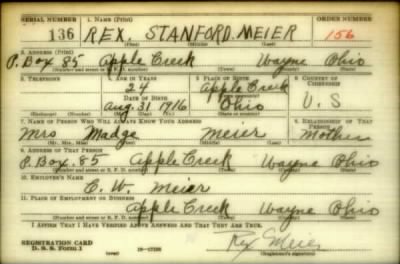 SERIAL NUMBER 1. NAME (Print) ORDER NUMBER
136 REX. STANFORD. MEIER 156
(First) (Middle) (Last)
2. ADDRESS (Print)
P. Box 85 Apple Creek Wayne Ohio
(Number and street or R. F. D. number) (Town) (County) (State)
3. TELEPHONE 4. AGE IN YEARS 5. PLACE OF BIRTH 6. COUNTRY OF CITIZENSHIP
24 Apple Creek
DATE OF BIRTH (Town or county)
Aug. 31 1916 Ohio U.S
(Exchange) (Number) (Mo.) (Day) (Yr.) (State or country)
7. NAME OF PERSON WHO WILL ALWAYS KNOW YOUR ADDRESS 8. RELATIONSHIP OF THAT PERSON
Mrs Madge Meier Mother
(Mr., Mrs., Miss) (First) (Middle) (Last)
9. ADDRESS OF THAT PERSON
P. Box. 85 Apple Creek Wayne Ohio
(Number and street or R. F. D. number) (Town) (County) (State)
10. EMPLOYER'S NAME
C. W. Meier
11. PLACE OF EMPLOYMENT OR BUSINESS
Apple Creek Wayne Ohio
(Number and street or R. F. D. number) (Town) (County) (State)
I AFFIRM THAT I HAVE VERIFIED ABOVE ANSWERS AND THAT THEY ARE TRUE.
REGISTRATION CARD
D. S. S. Form 1 (over) Rex Meier
(Registrant's signature)